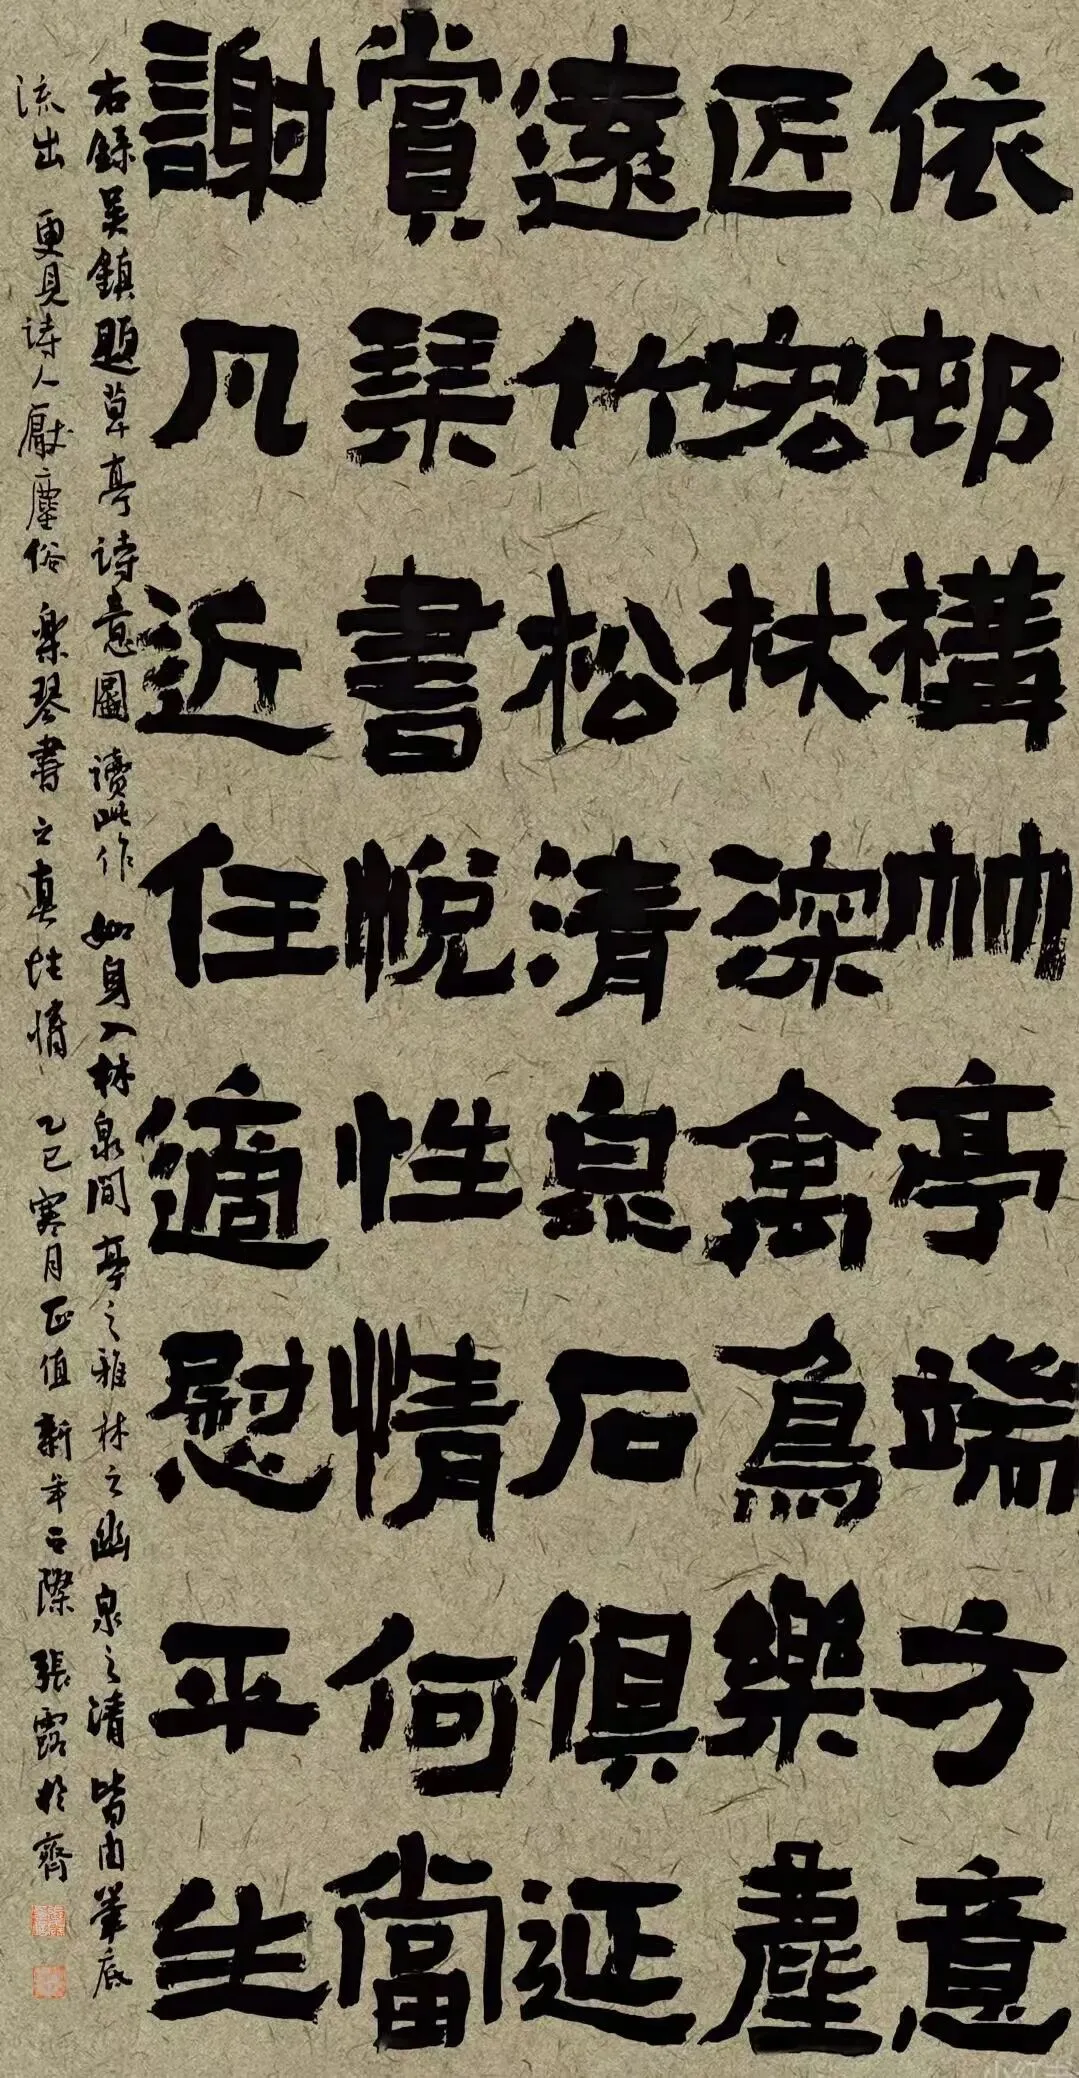 依邨構艸亭端方意
匠宏林深禽鳥樂塵
遠竹松清泉石俱延
賞琴書悅性情何當
謝凡近任適慰平生
右錄吴鎮題草亭诗意圖 读此作 如身入林泉間 亭之雅 林之幽 泉之清 皆由筆底
流出 更見诗人厭塵俗 樂琴書之真性情 乙巳寒月正值新年之際 張露於齊